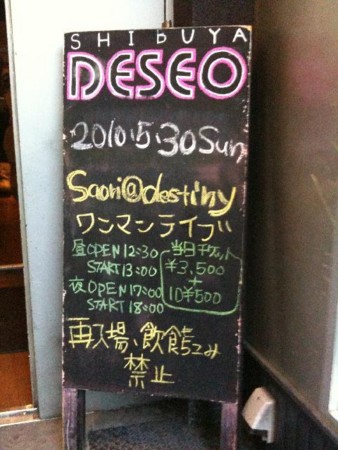 SHIBUYA
DESEO
2010.5.30 Sun
Saori@destiny
ワンマンライブ
昼 OPEN 12:30
START 13:00
夜 OPEN 17:00
START 18:00
当日チケット
¥3,500
+
1D ¥500
再入場、飲食もちこみ
禁止